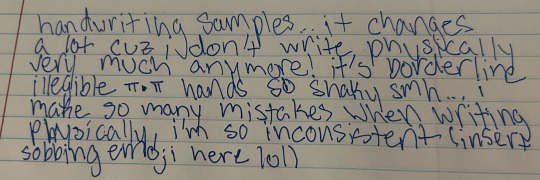 handwriting samples... it changes
a lot cuz i don't write physically
very much anymore! it's borderline
illegible π.π hands so shaky smh... i
make so many mistakes when writing
physically, i'm so inconsistent (insert
sobbing emoji here lol)